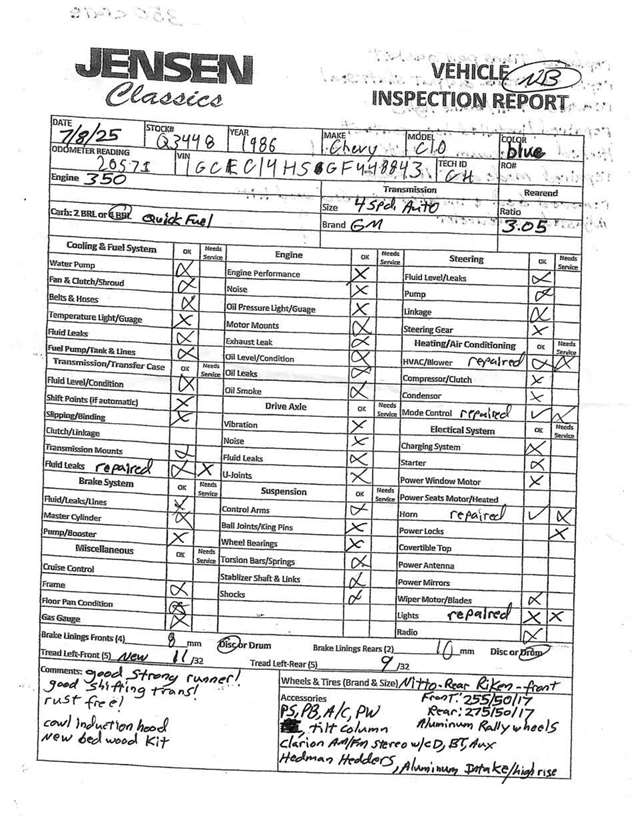 JENSEN
Classics
VEHICLE
INSPECTION REPORT
NB
DATE 7/8/25 STOCK# Q3448 YEAR 1986 MAKE Chevy MODEL C10 COLOR blue
ODOMETER READING 20571 VIN 1GCEC14HS GF448843 TECH ID CH RO#
Engine 350 Transmission Rearend
Carb: 2 BRL or 4 BRL Quick Fuel Size 4 spd. Auto Ratio
Brand GM 3.05
Cooling & Fuel System OK Needs Service
Water Pump
Fan & Clutch/Shroud
Belts & Hoses
Temperature Light/Guage
Fluid Leaks
Fuel Pump/Tank & Lines
Transmission/Transfer Case OK Needs Service
Fluid Level/Condition
Shift Points (if automatic)
Slipping/Binding
Clutch/Linkage
Transmission Mounts
Fluid Leaks repaired
Brake System OK Needs Service
Fluid/Leaks/Lines
Master Cylinder
Pump/Booster
Miscellaneous OK Needs Service
Cruise Control
Frame
Floor Pan Condition
Gas Gauge
Engine OK Needs Service
Engine Performance
Noise
Oil Pressure Light/Guage
Motor Mounts
Exhaust Leak
Oil Level/Condition
Oil Leaks
Oil Smoke
Drive Axle OK Needs Service
Vibration
Noise
Fluid Leaks
U-Joints
Suspension OK Needs Service
Control Arms
Ball Joints/King Pins
Wheel Bearings
Torsion Bars/Springs
Stablizer Shaft & Links
Shocks
Steering OK Needs Service
Fluid Level/Leaks
Pump
Linkage
Steering Gear
Heating/Air Conditioning OK Needs Service
HVAC/Blower repaired
Compressor/Clutch
Condensor
Mode Control repaired
Electical System OK Needs Service
Charging System
Starter
Power Window Motor
Power Seats Motor/Heated
Horn repaired
Power Locks
Covertible Top
Power Antenna
Power Mirrors
Wiper Motor/Blades
Lights repaired
Radio
Brake Linings Fronts (4) 8 mm Disc or Drum Brake Linings Rears (2) 10 mm Disc or Drum
Tread Left-Front (5) New 11/32 Tread Left-Rear (5) 9/32
Comments: good strong runner!
good shifting trans!
rust free!
cowl induction hood
New bed wood kit
Wheels & Tires (Brand & Size) Nitto-Rear Riken-front
Front: 255/50/17
Rear: 275/50/17
Aluminum Rally wheels
Accessories
PS, PB, A/C, PW
, tilt column
Clarion Am/Fm stereo w/cD, BT, Aux
Hedman Hedders, Aluminum Intake/high rise